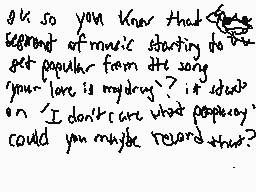 ok so you know that
segment of music starting to
get popular from the song
"your love is my drug"? it starts
on "I don't care what people say"
could you maybe record that?